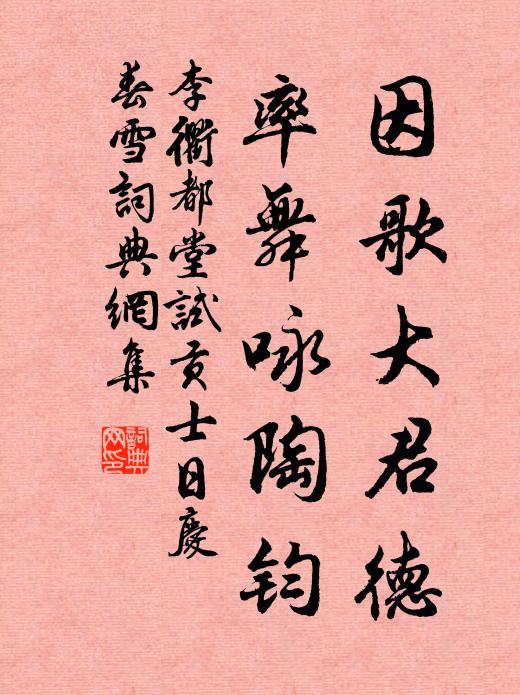 因歌大君德
率舞咏陶钧
李衢都堂試貢士日慶
春雪詞典網集
詞典
网印